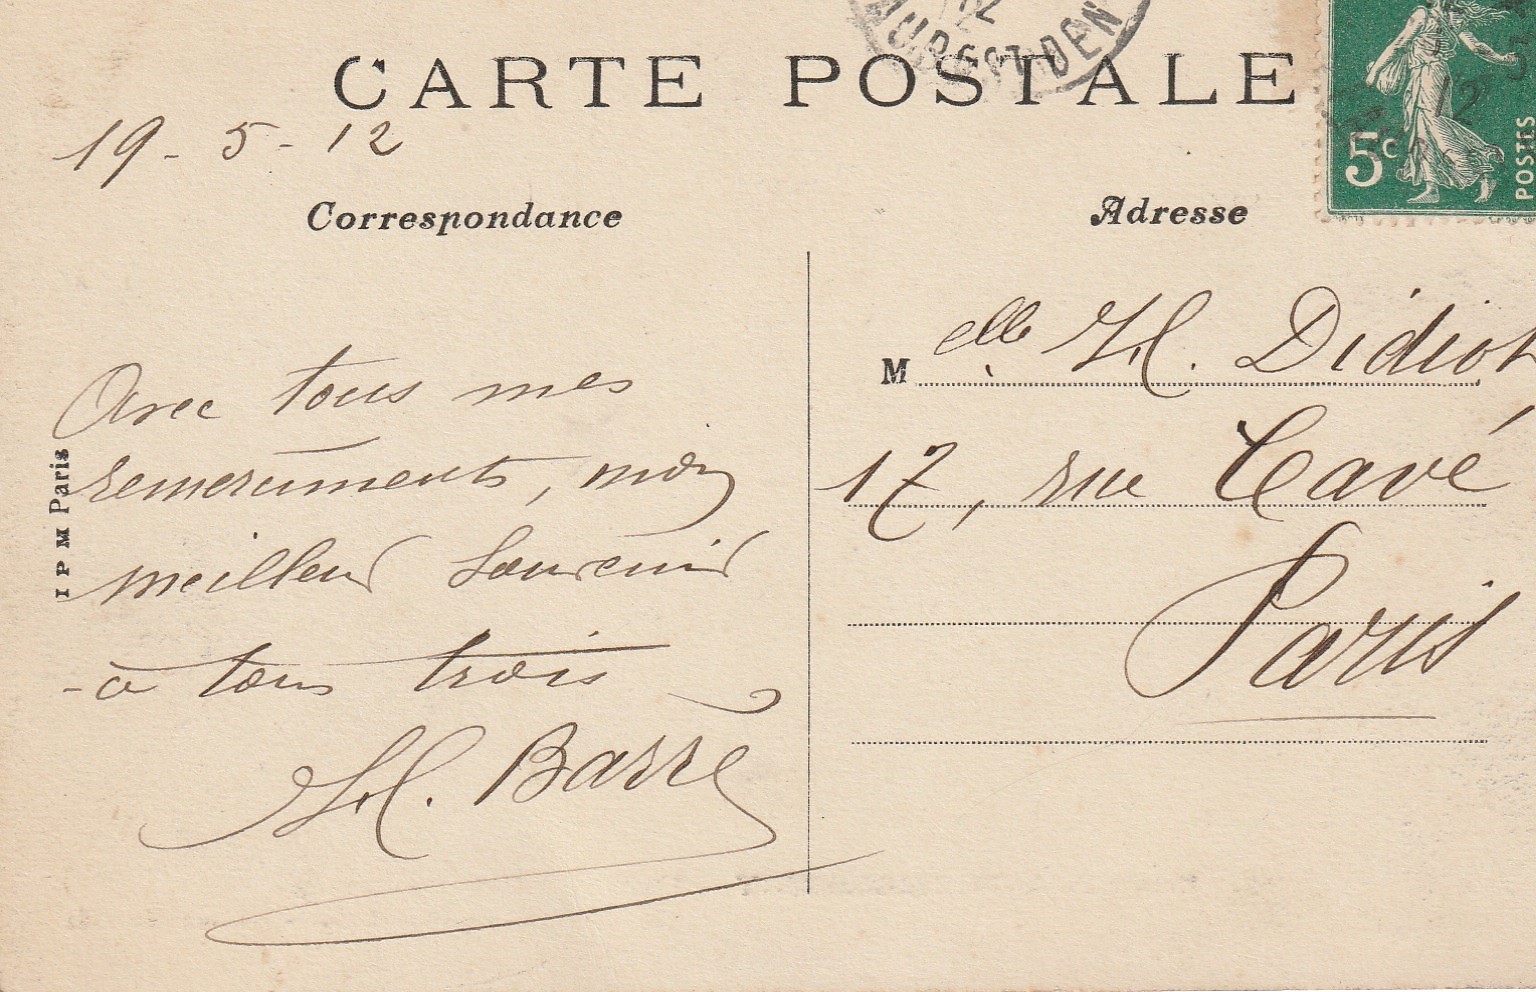 CARTE POSTALE
19-5-12
Correspondance
Adresse
5c
POSTES
12
Avec tous mes
remerciments, mon
meilleur souvenir
à tous trois
H. Barré
Melle H. Didiot
17, rue Cavé
Paris
I P M Paris